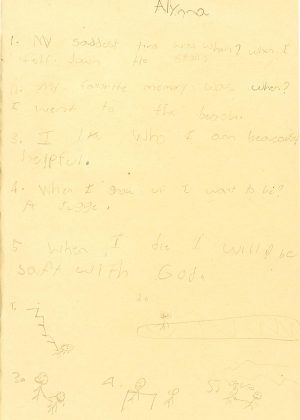 Alynna
1. My saddest time was when? when I
fell down the stairs
2. my favorite memory was when?
I went to the beach.
3. I like Who I am because
helpful.
4. When I grow up I want to be?
A Judge.
5. When I die I will be
saft with God.
1.
2.
3.
4.
5.